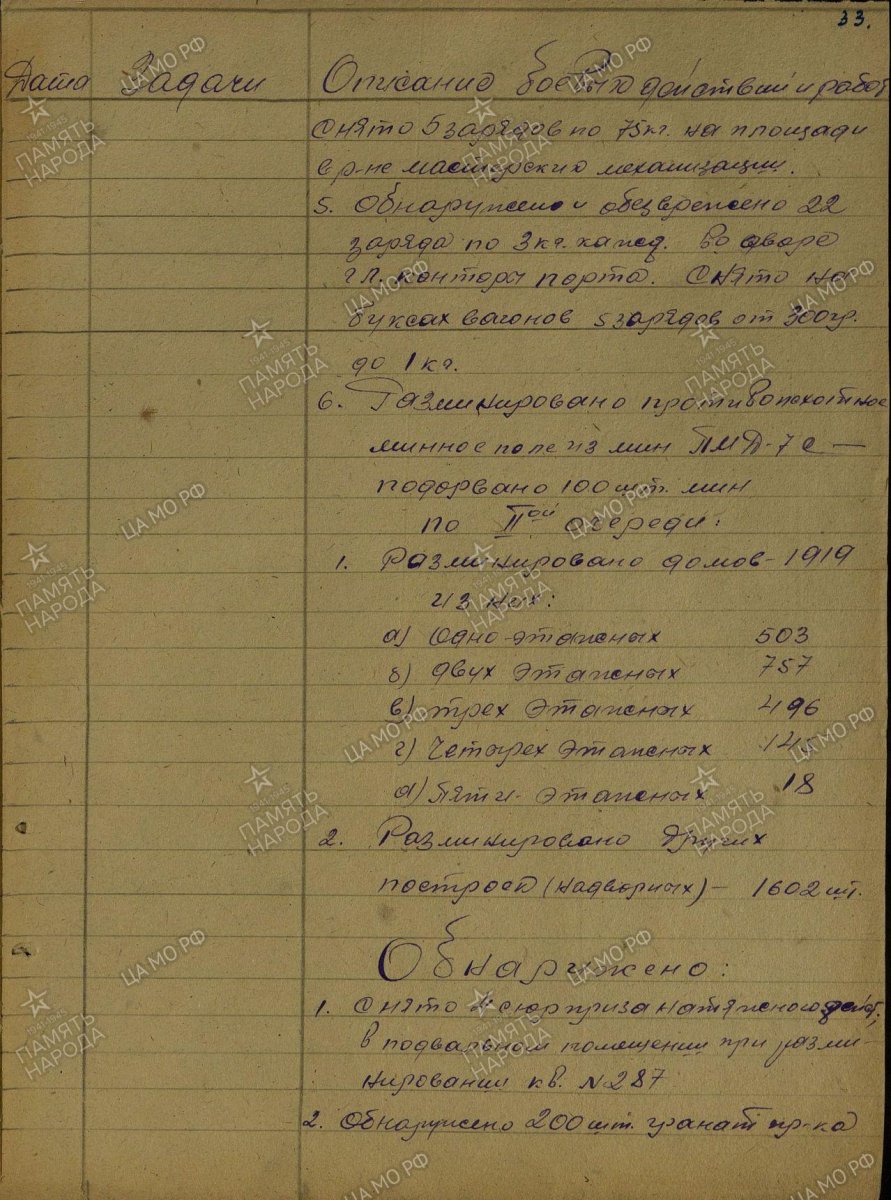 33.
Дата Задачи Описание боевых действий и работ
Снято 5 зарядов по 75 кг. на площади
в р-не мастерских механизации.
5. Обнаружено и обезврежено 22
заряда по 3 кг. кажд. во дворе
гл. конторы порта. Снято на
буксах вагонов 5 зарядов от 300 гр.
до 1 кг.
6. Разминировано противопехотное
минное поле из мин ПМД-7 с —
подорвано 100 шт. мин
по II ой очереди:
1. Разминировано домов - 1919
из них:
а) Одно-этажных 503
б) двух этажных 757
в) трех этажных 496
г) Четырех этажных 145
д) Пяти-этажных 18
2. Разминировано других
построек (надворных) - 1602 шт.
Обнаружено:
1. Снято 4 сюрприза натяжного
в подвальном помещении при разми-
нировании кв. №287
2. Обнаружено 200 шт. гранат пр-ка
ЦА МО РФ
1941-1945
ПАМЯТЬ
НАРОДА